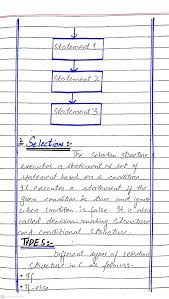 Statement 1
Statement 2
Statement 3
2. Selection :-
The selection structure
executes a statement or set of
statement based on a condition.
It executes a statement if the
given condition is true and ignore
when condition is false. It is also
called decision making structure
and conditional structure.
TYPES :-
Different types of selection
structure in C are follows:-
• If
• If-else